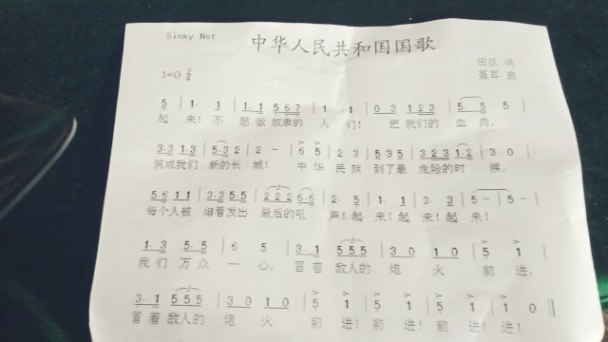 Sinky Net
中华人民共和国国歌
田汉 词
1=G 2/4
聂耳 曲
5 | 1. 1 | 1.1 567 | 1 1 | 03 123 | 5 5 5 |
起 来! 不 愿做 奴隶的 人 们! 把 我们的 血 肉,
3.3 1.3 | 5.3 2 | 2 - | 6 5 | 2 3 | 535 | 323 12 | 3 0 |
筑成我们 新的长 城! 中华 民族 到了最 危险的时 候,
5.6 11 | 3.3 55 | 222 6.6 | 2. 5 | 1. 1 | 3. 3 | 5 - | 5 - |
每个人被 迫着发出 最后的吼 声! 起 来! 起 来! 起 来!
1.3 5.5 | 6 5 | 3.1 555 | 30 10 | 5 1 |
我们 万众 一 心, 冒着 敌人的 炮 火 前 进,
3.1 555 | 30 10 | 5 1 | 5 1 | 5 1 | 1 0 ‖
冒着 敌人的 炮 火 前 进! 前 进! 前 进! 进!